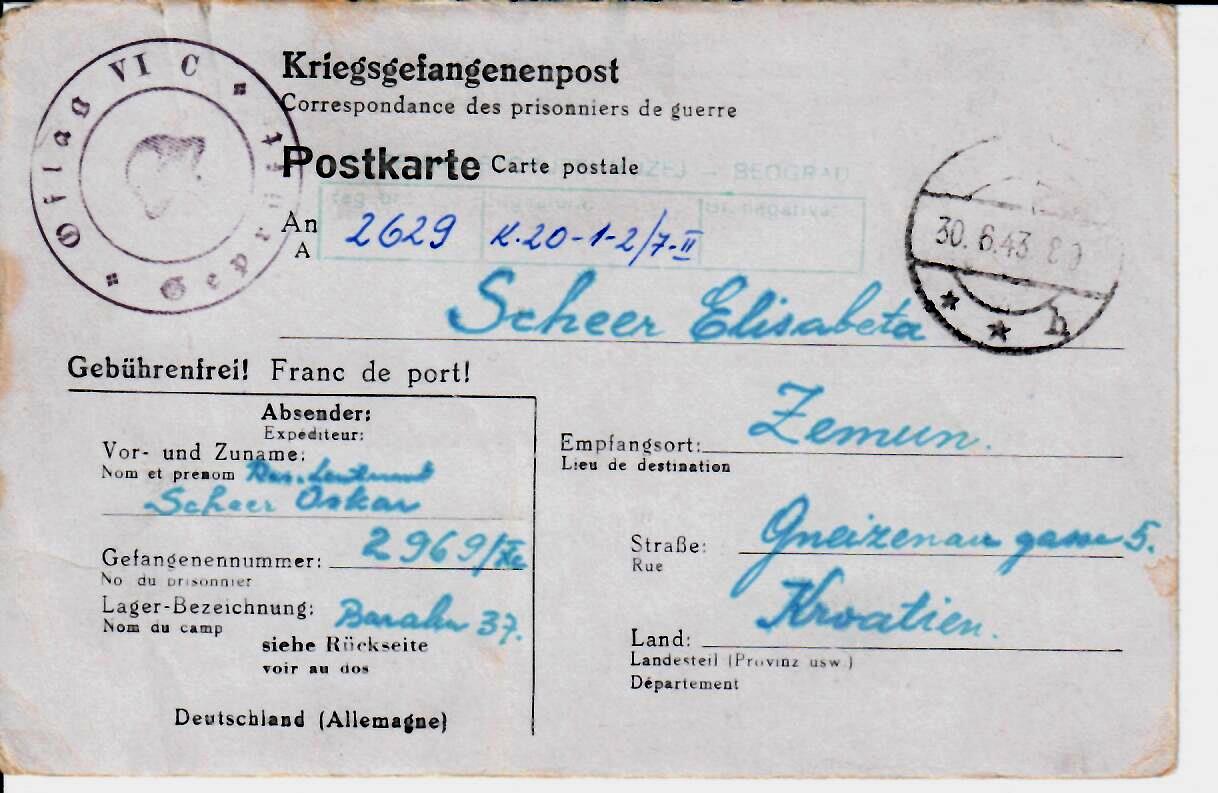 Oflag VI C
Geprüft
Kriegsgefangenenpost
Correspondance des prisonniers de guerre
Postkarte Carte postale
BEOGRAD
An 2629 K.20-1-2/7-II
A
30.6.43
h
Scheer Elisabeta
Gebührenfrei! Franc de port!
Absender:
Expéditeur:
Vor- und Zuname:
Nom et prenom Res. Leutnant
Scheer Oskar
Gefangenennummer: 2969/Xc
No du prisonnier
Lager-Bezeichnung: Barake 37.
Nom du camp
siehe Rückseite
voir au dos
Deutschland (Allemagne)
Empfangsort: Zemun.
Lieu de destination
Straße: Gneizenau gasse 5.
Rue
Kroatien.
Land:
Landesteil (Provinz usw.)
Département